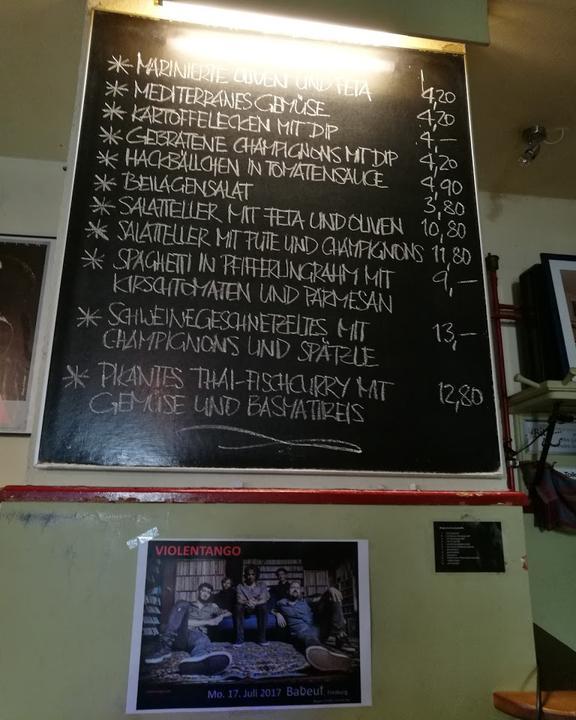 * MARINIERTE OLIVEN UND FETA 4,20
* MEDITERRANES GEMÜSE 4,20
* KARTOFFELECKEN MIT DIP 4,—
* GEBRATENE CHAMPIGNONS MIT DIP 4,20
* HACKBÄLLCHEN IN TOMATENSAUCE 4,90
* BEILAGENSALAT 3,80
* SALATTELLER MIT FETA UND OLIVEN 10,80
* SALATTELLER MIT PUTE UND CHAMPIGNONS 11,80
* SPAGHETTI IN PFIFFERLINGRAHM MIT 9,—
KIRSCHTOMATEN UND PARMESAN
* SCHWEINEGESCHNETZELTES MIT 13,—
CHAMPIGNONS UND SPÄTZLE
* PIKANTES THAI-FISCHCURRY MIT 12,80
GEMÜSE UND BASMATIREIS
VIOLENTANGO
Mo. 17. Juli 2017 Babeuf, Freiburg